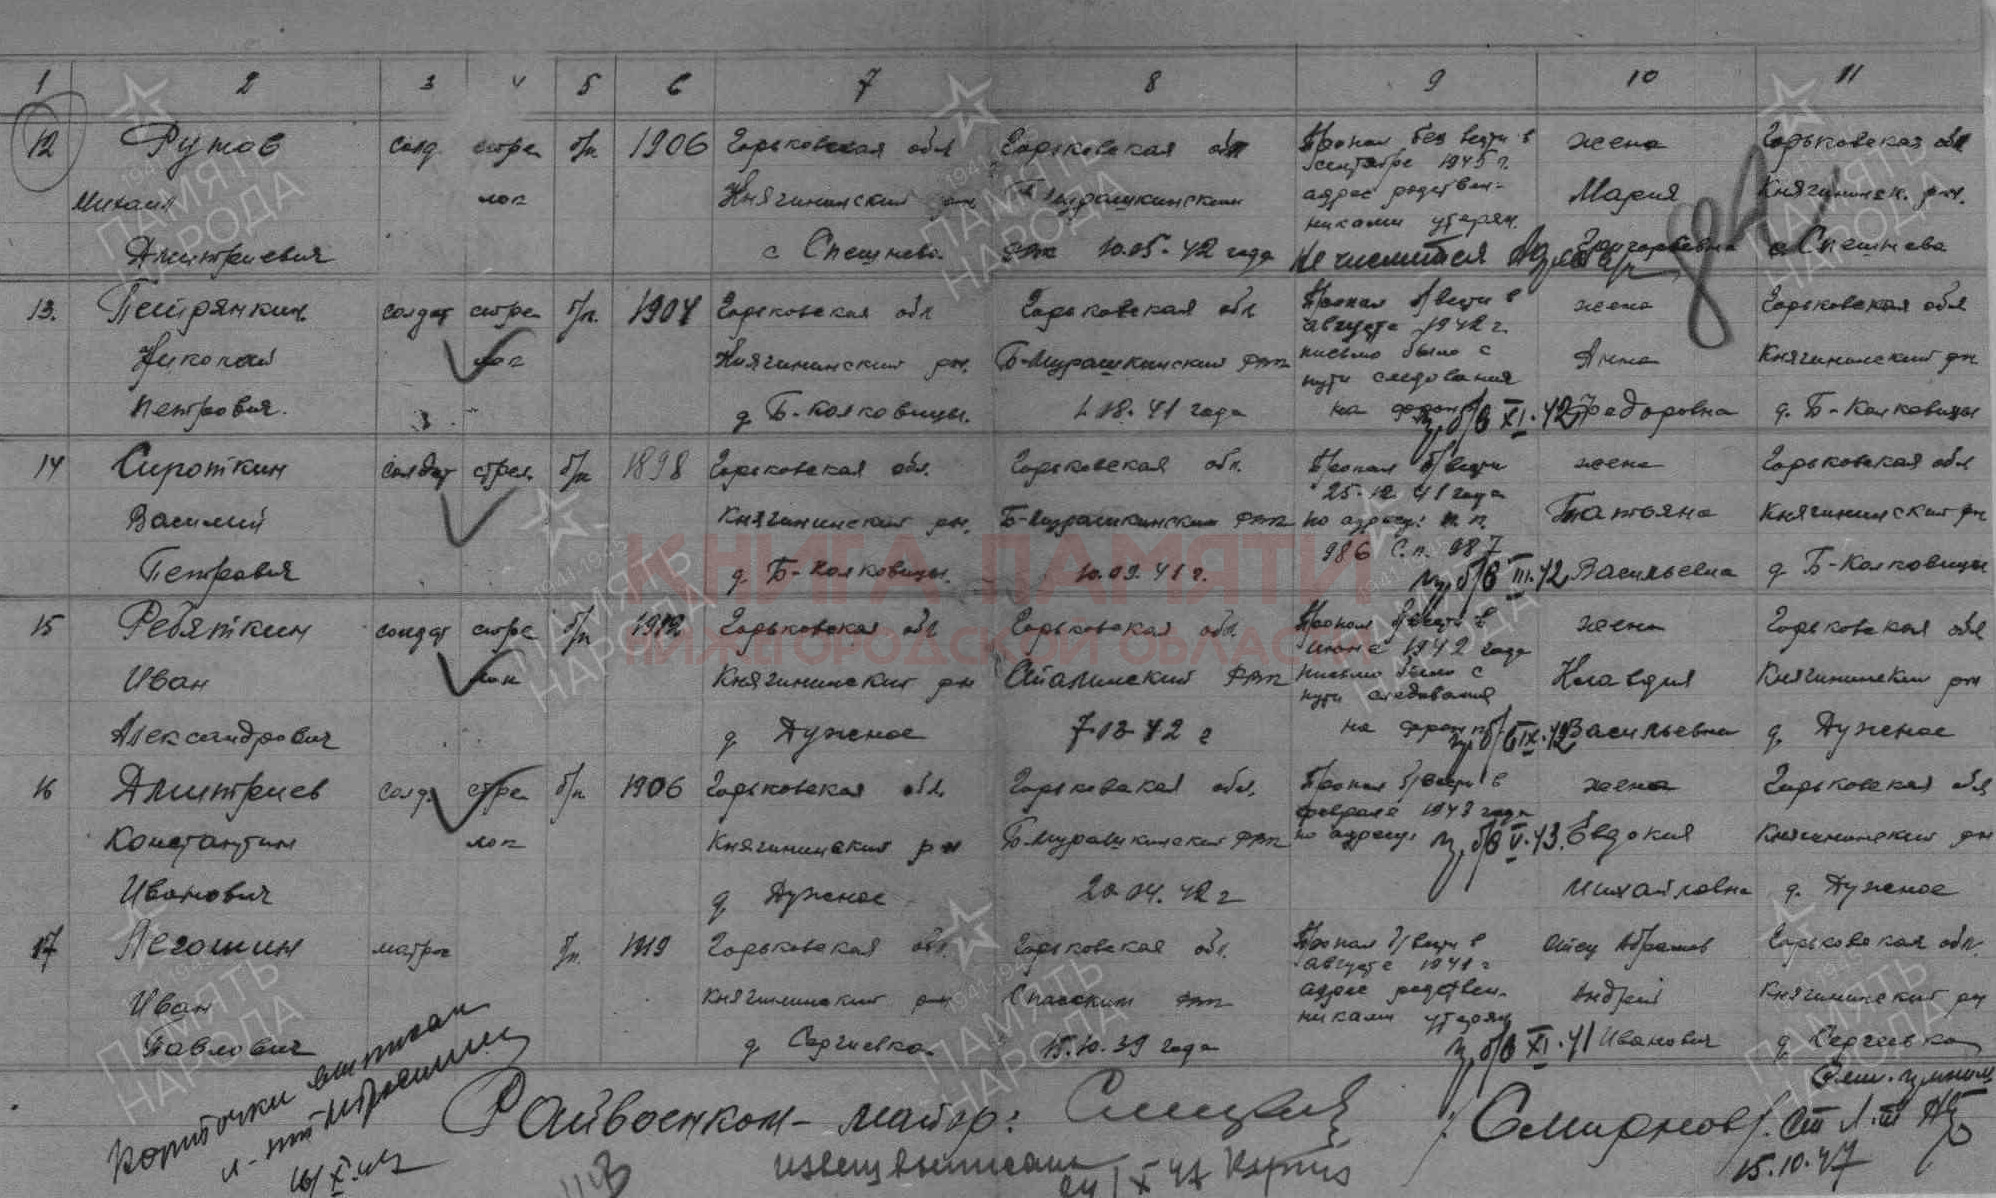 1 2 3 4 5 6 7 8 9 10 11
12 Рутов солд. стре б/п 1906 Горьковская обл Горьковская обл Пропал без вести в жена Горьковская обл
сентябре 1945 г.
Михаил лок Княгининский рн Б Мурашкинским адрес родствен- Мария Княгининск. рн.
никами утерян.
Дмитриевич с Спешнево. РВК 10.05.42 года Не числится Григорьевна с Спешнева
13. Петрянкин. солдат стре б/п. 1904 Горьковская обл Горьковская обл Пропал б/вести в жена Горьковская обл
августе 1942 г.
Николай лок Княгининский рн. Б-Мурашкинский РВК письмо было с Анна Княгининский рн
пути следования
Петрович. д. Б-Колковицы. 1.18.41 года на фронт пр. б/в XI.42 Федоровна д. Б-Колковицы
14 Сироткин солдат стрел. б/п 1898 Горьковская обл. Горьковская обл. Пропал б/вести жена Горьковская обл
25-12 41 года
Василий Княгининский рн. Б-Мурашкинским РВК по адресу: п. п. Татьяна Княгининский рн
986 С.п. 987
Петрович д. Б-Колковицы. 10.09.41 г. пр. б/в III.42 Васильевна д Б-Колковицы
15 Ребяткин солдат стре б/п 1912 Горьковская обл Горьковская обл Пропал б/вести в жена Горьковская обл
июне 1942 года
Иван лок Княгининский рн РВК письмо было с Клавдия Княгининский рн
пути следования
Александрович д Дужное 42 г на фронт пр. б/в IX.42 Васильевна д. Дужное
16 Дмитриев солд. стре б/п 1906 Горьковская обл. Горьковская обл. Пропал б/вести в жена Горьковская обл
феврале 1943 года
Константин лок Княгининский рн Б-Мурашкинский РВК по адресу: пр. б/в V.43. Евдокия Княгининский рн
Иванович д Дужное 20.04.42 г Михайловна д. Дужное
17 Легошин матрос б/п. 1919 Горьковская обл. Горьковская обл. Пропал б/вести в Отец Абрамов Горьковская обл.
августе 1941 г
Иван Княгининский рн Спасским РВК адрес родствен- Андрей Княгининский рн
никами утерян
Павлович д Сергиевка. 15.10.39 года пр. б/в XI.41 Иванович д Сергеевка
Карточки выписал
л-нт
Райвоенком - майор: /Смирнов/. ст л-нт
15.10.47
извещ выписаны
X 47
КНИГА ПАМЯТИ
НИЖЕГОРОДСКОЙ ОБЛАСТИ
1941-1945
ПАМЯТЬ
НАРОДА